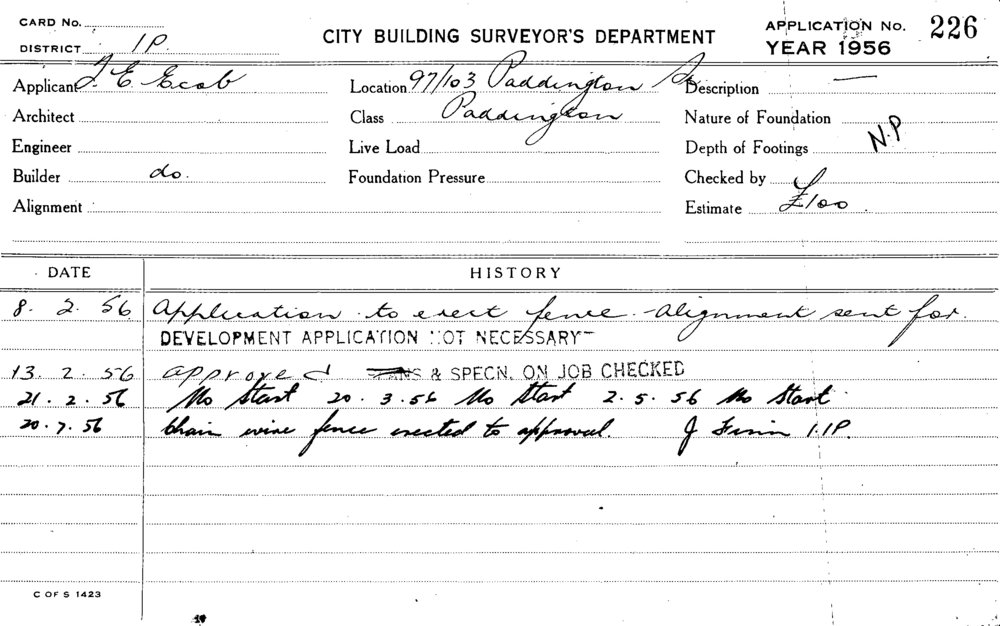 CARD No.
DISTRICT 1P.
CITY BUILDING SURVEYOR'S DEPARTMENT
APPLICATION No. 226
YEAR 1956
Applicant J. E. Ecob
Location 97/103 Paddington St
Description —
Architect
Class Paddington
Nature of Foundation
Engineer
Live Load
Depth of Footings N.P
Builder do.
Foundation Pressure
Checked by
Alignment
Estimate £100.
DATE HISTORY
8. 2. 56 Application to erect fence - alignment sent for.
DEVELOPMENT APPLICATION NOT NECESSARY
13. 2. 56 approved & SPECN. ON JOB CHECKED
21. 2. 56 No Start 20. 3. 56 No Start 2. 5. 56 No Start.
20. 7. 56 Chain wire fence erected to approval. J 1.1P.
C OF S 1423